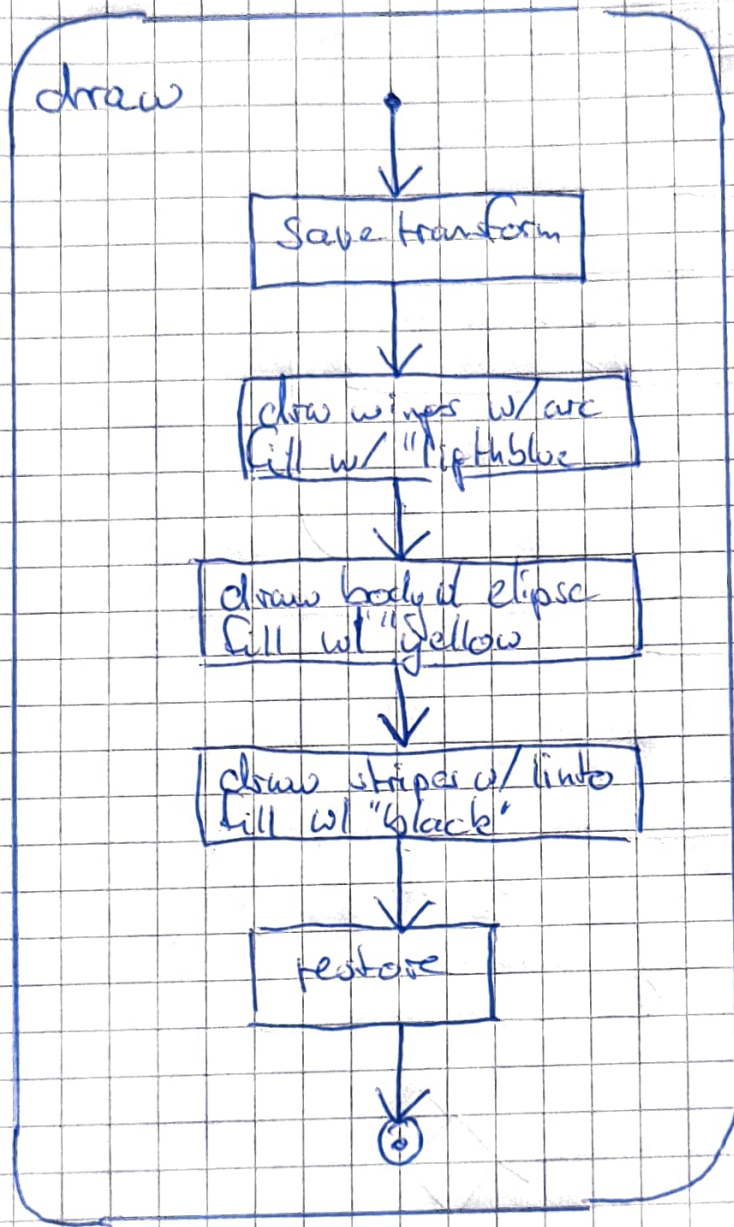 draw
save transform
draw wings w/ arc
fill w/ "ligthblue
draw body w/ elipse
fill w/ "yellow
draw stripes w/ linto
fill w/ "black"
restore